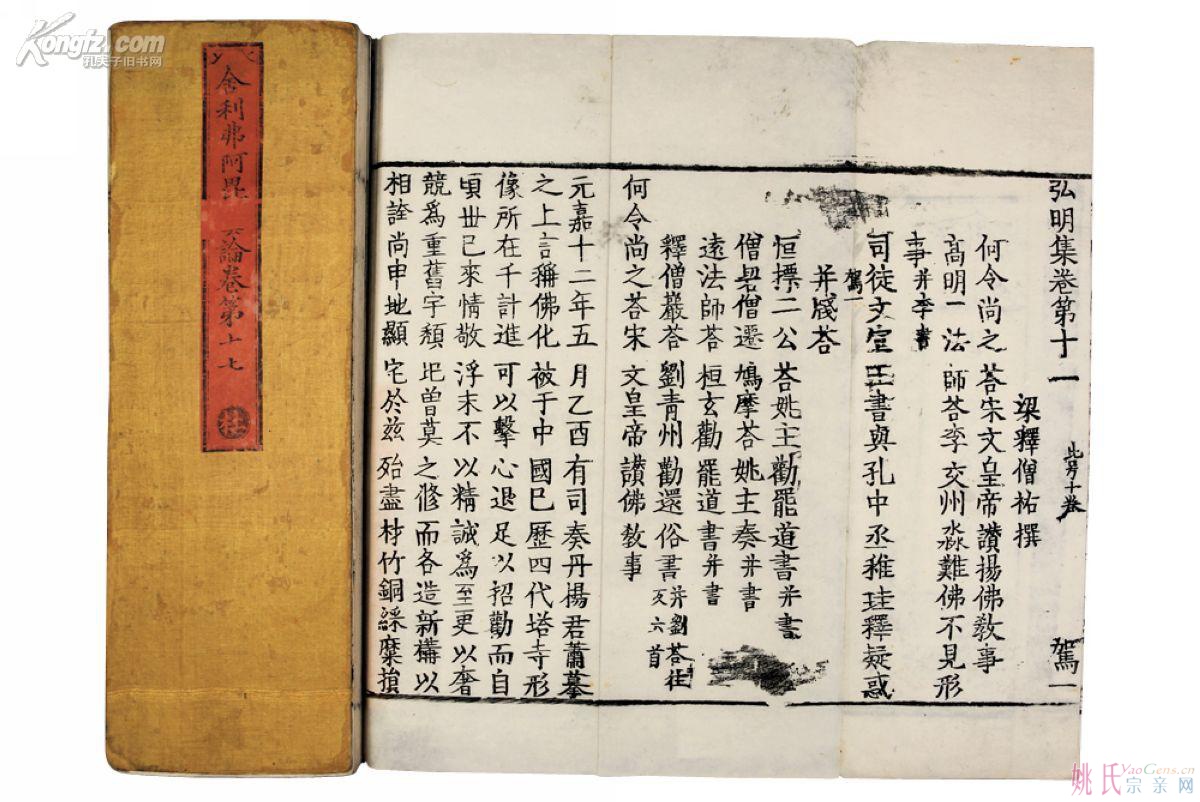 Kongfz.com
孔夫子旧书网
舍利弗阿毘
論卷第十七
弘明集卷第十一
駕一
梁釋僧祐撰
何令尚之荅宋文皇帝讃揚佛敎事
高明二法師荅李交州淼難佛不見形
事并李書
司徒文宣王書與孔中丞稚珪釋疑惑
駕一
并牋荅
恒摽二公荅姚主勸罷道書并書
僧䂮僧遷鳩摩荅姚主奏并書
遠法師荅桓玄勸罷道書并書
釋僧巖荅劉青州勸還俗書并劉荅往
反六首
何令尚之荅宋文皇帝讃佛敎事
元嘉十二年五月乙酉有司奏丹揚君蕭摹
之上言稱佛化被于中國巳歷四代塔寺形
像所在千計進可以擊心退足以招勸而自
頃世已來情敬浮末不以精誠爲至更以奢
競爲重舊宇頹阤曾莫之修而各造新構以
相誇尚申地顯宅於兹殆盡材竹銅綵糜損
姚氏YaoGens.cn
宗亲网